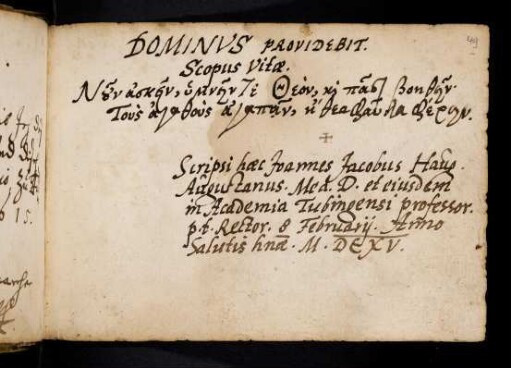 DOMINVS PROVIDEBIT.
Scopus Vitæ.
Νοῦν ἀσκεῖν, ὑμνεῖν τε Θεὸν, καὶ πᾶσι βοηθεῖν.
Τοὺς ἀγαθοὺς ἀγαπᾶν, φαῦλα φέρειν.
Scripsi hæc Joannes Jacobus Haug.
Augustanus. Med. D. et eiusdem
in Academia Tubingensi professor.
p.t. Rector. 8 Februarij. Anno
Salutis hnæ. M. DCXV.
49
15.